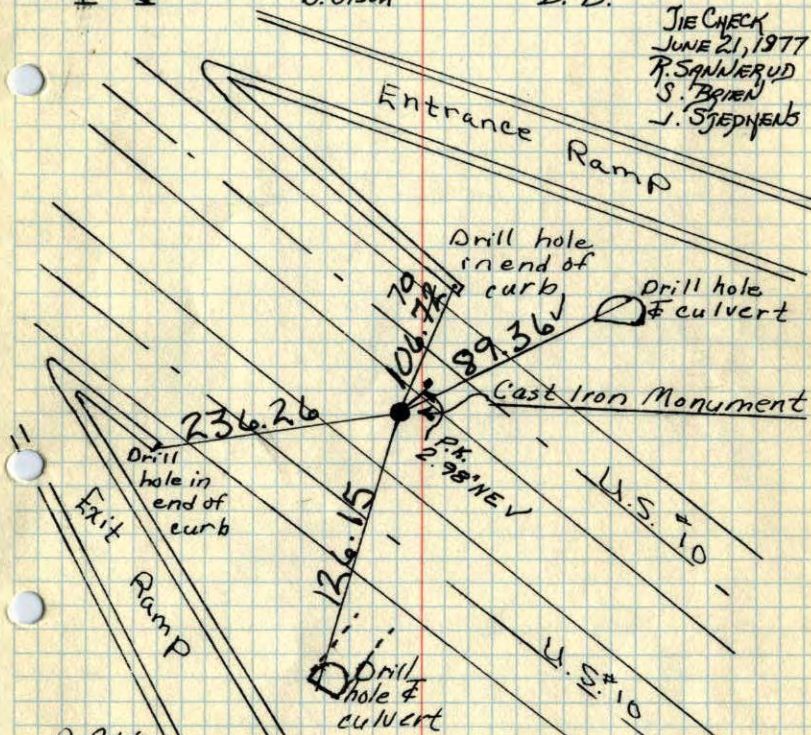 TIE CHECK
JUNE 21, 1977
R. SANNERUD
S. BRIEN
J. STEPHENS
Entrance Ramp
Drill hole
in end of
curb
Drill hole
& culvert
70
106.72
89.36 √
Cast Iron Monument
236.26
P.K.
2.98' NE √
Drill
hole in
end of
curb
11
Exit
Ramp
136.15
U.S. #10
U.S. #10
Drill
hole &
culvert